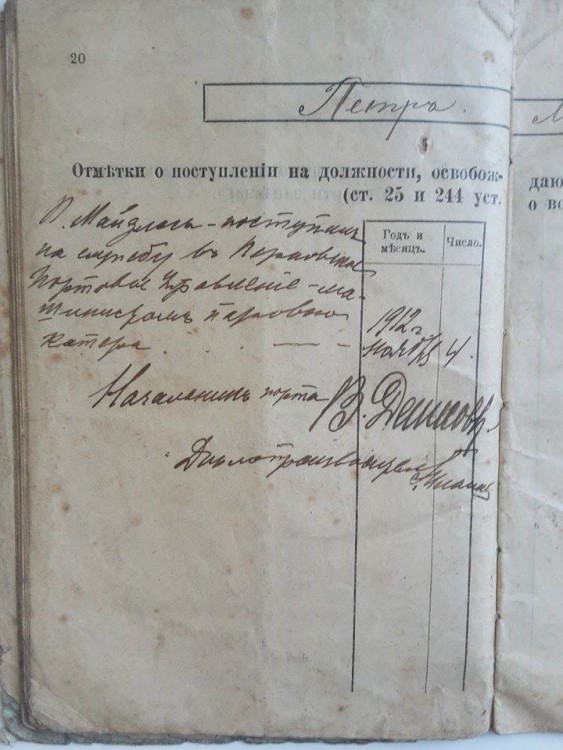 20
Петръ.
М
Отмѣтки о поступленіи на должности, освобож-
даю
(ст. 25 и 244 уст.
о во
Годъ и мѣсяцъ.
Число.
П. Майдлесъ поступилъ
на службу въ Перновское
Портовое Управленіе ма-
шинистомъ парового
катера.
1912 г
ноября 4.
Начальникъ порта
Дѣлопроизводитель